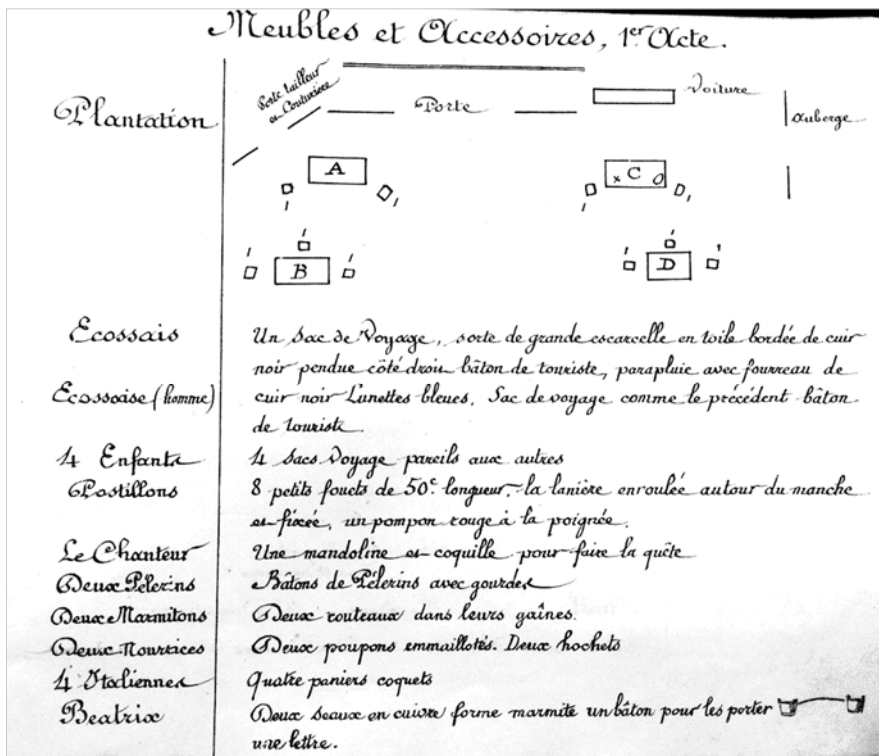 Meubles et Accessoires, 1er Acte.
Plantation
Porte tailleur
et Couturière
Porte
Voiture
Auberge
A
x C
B
D
Ecossais
Un Sac de Voyage, sorte de grande escarcelle en toile bordée de cuir
noir pendue côté droit bâton de touriste, parapluie avec fourreau de
Ecossaise (homme)
cuir noir Lunettes bleues. Sac de voyage comme le précédent bâton
de touriste
4 Enfants
4 Sacs Voyage pareils aux autres
Postillons
8 petits fouets de 50c longueur. la lanière enroulée autour du manche
et fixée, un pompon rouge à la poignée.
Le Chanteur
Une mandoline et coquille pour faire la quête
Deux Pélerins
Bâtons de Pélerins avec gourdes
Deux Marmitons
Deux couteaux dans leurs gaînes.
Deux Nourrices
Deux poupons emmaillotés. Deux hochets
4 Italiennes
Quatre paniers coquets
Beatrix
Deux seaux en cuivre forme marmite un bâton pour les porter
une lettre.